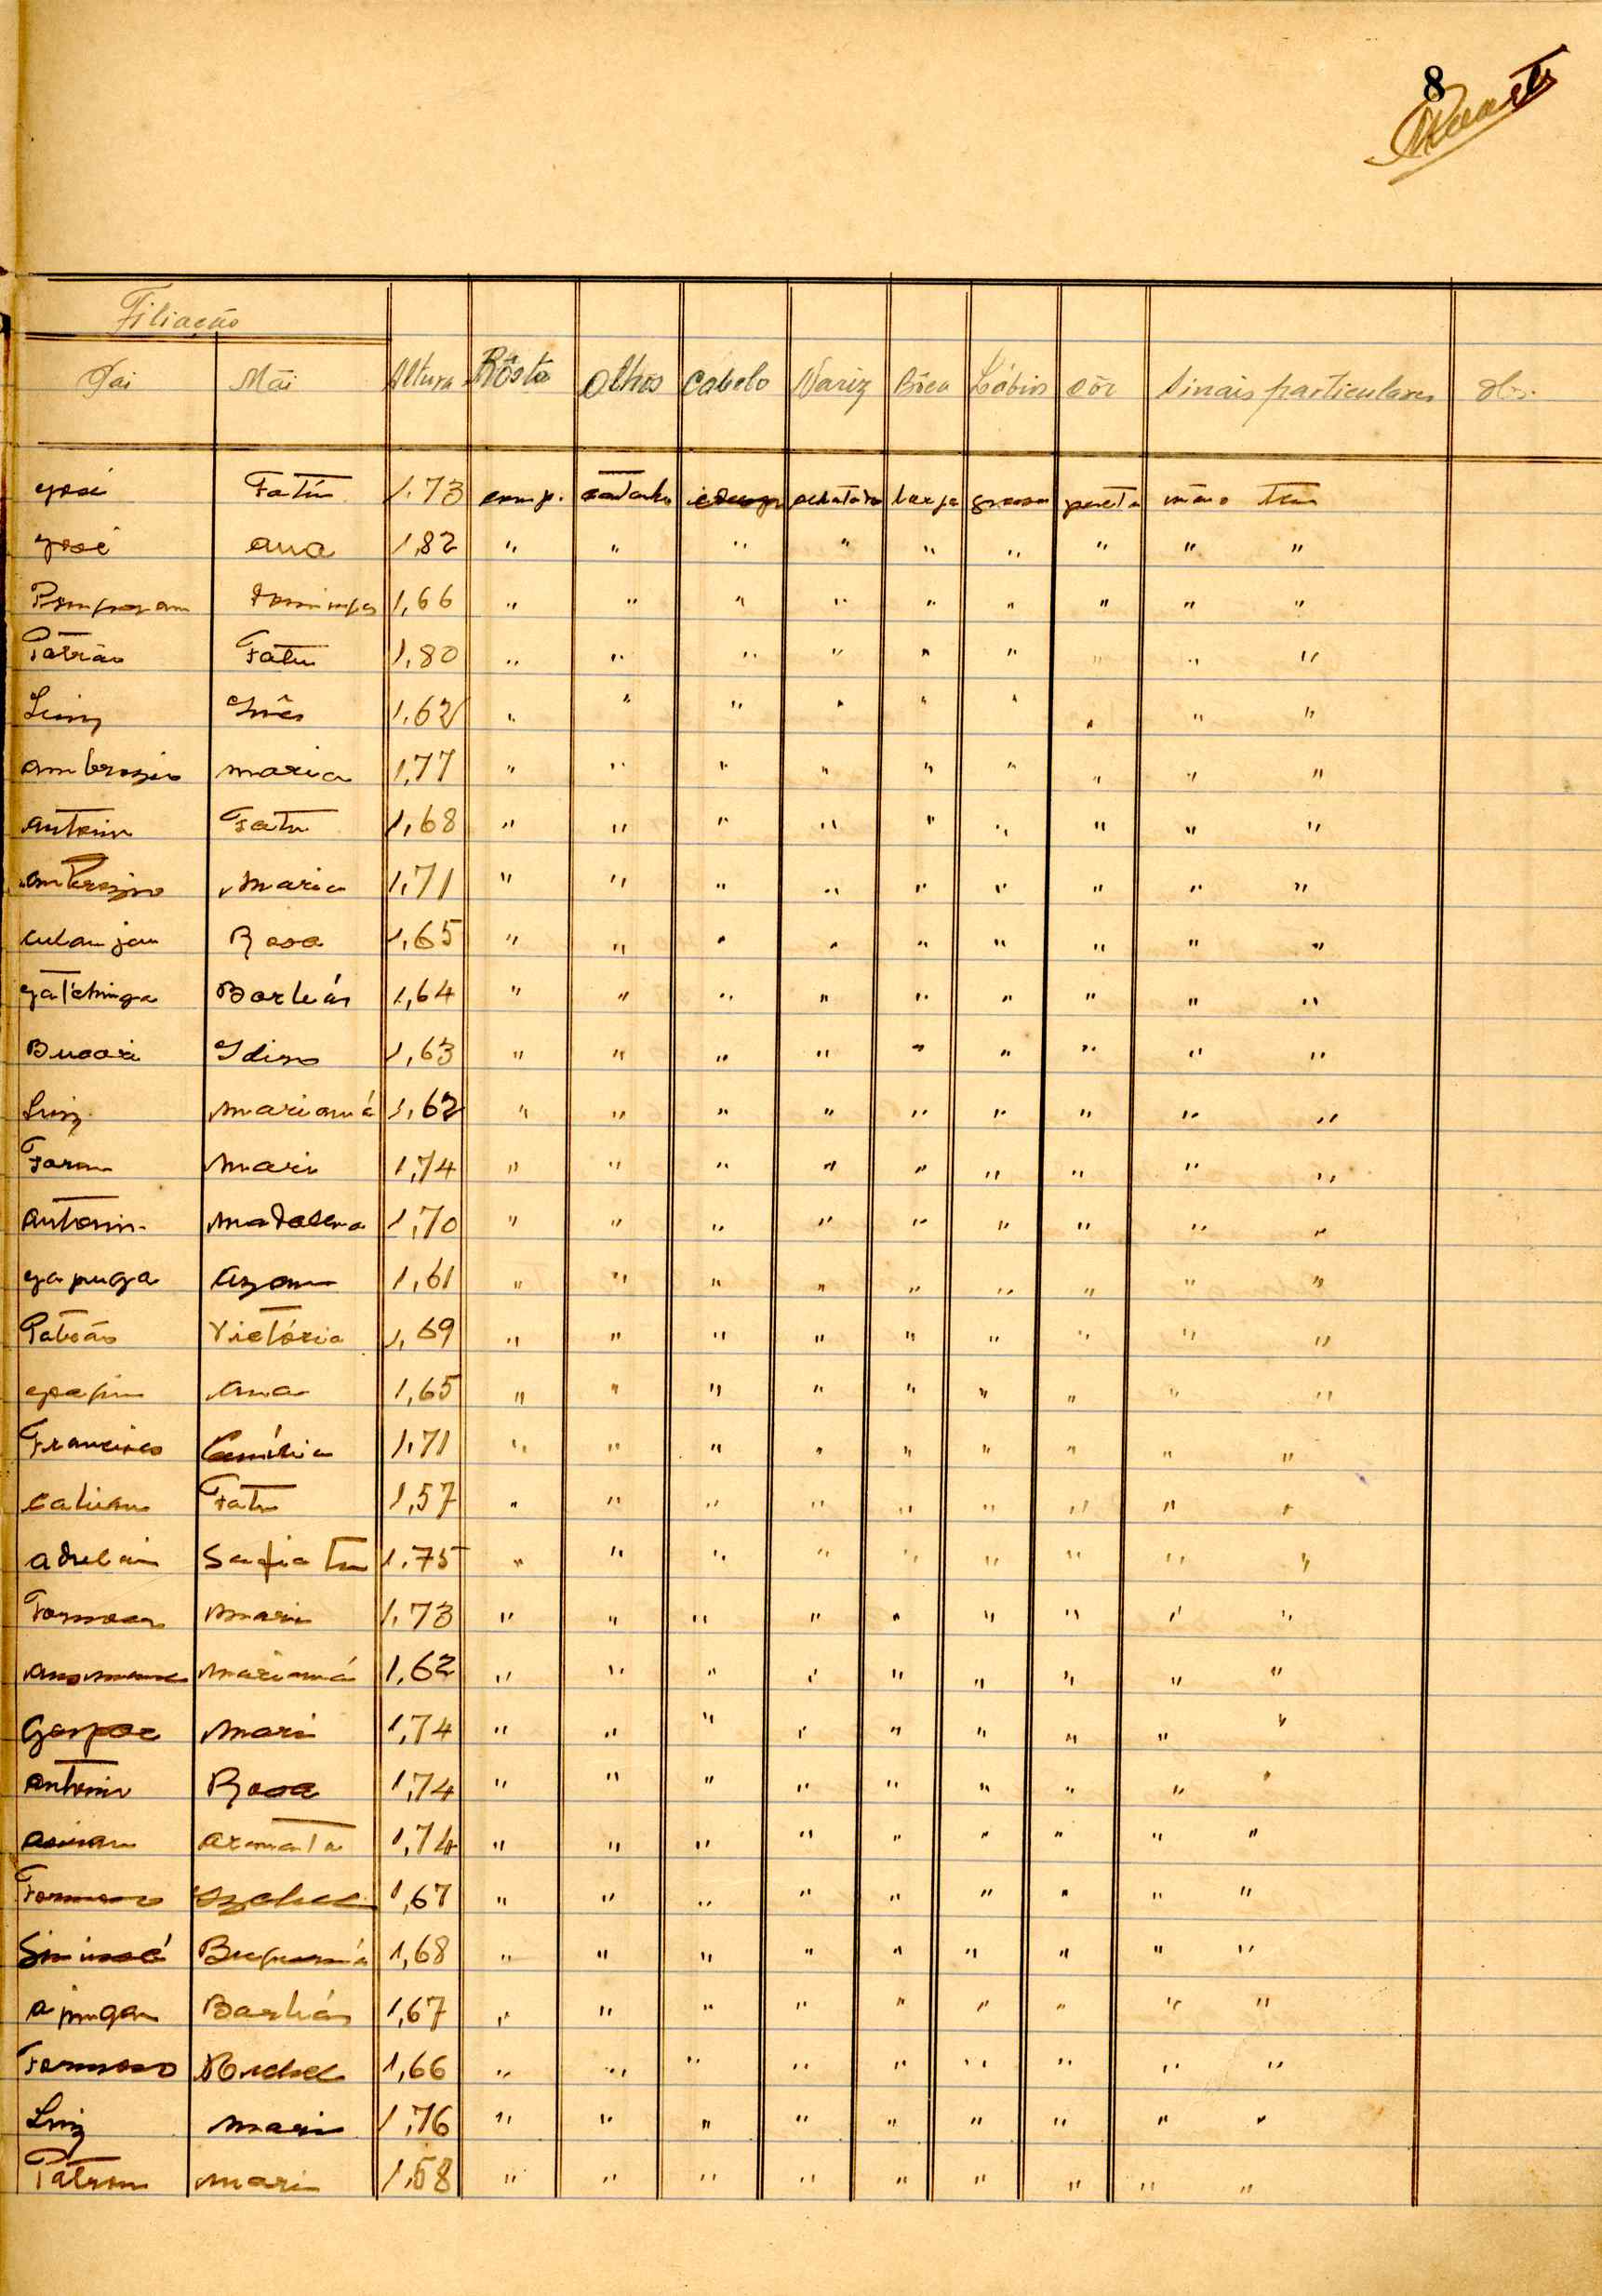 8
Filiação
Pai Mãi Altura Rôsto Olhos Cabelo Nariz Bôca Lábios Côr Sinais particulares Obs.
José Fatú 1,73 comp. castanho achatado larga grosso preta não tem
José Ana 1,82 " " " " " " " " "
Domingas 1,66 " " " " " " " " "
Patrão Fatu 1,80 " " " " " " " " "
Luiz Inês 1,62 " " " " " " " " "
Ambrozio Maria 1,77 " " " " " " " " "
Antonio Fatu 1,68 " " " " " " " " "
Ambrozio Maria 1,71 " " " " " " " " "
Rosa 1,65 " " " " " " " " "
Barkás 1,64 " " " " " " " " "
1,63 " " " " " " " " "
Luiz Marianá 1,62 " " " " " " " " "
Mari 1,74 " " " " " " " " "
Antonio Madalena 1,70 " " " " " " " " "
Japuga 1,61 " " " " " " " " "
Patrão Victória 1,69 " " " " " " " " "
Ana 1,65 " " " " " " " " "
Francisco 1,71 " " " " " " " " "
Fatu 1,57 " " " " " " " " "
1,75 " " " " " " " " "
Mari 1,73 " " " " " " " " "
Marianá 1,62 " " " " " " " " "
Gaspar Mari 1,74 " " " " " " " " "
Antonio Rosa 1,74 " " " " " " " " "
1,74 " " " " " " " " "
Formoso Izabel 1,67 " " " " " " " " "
1,68 " " " " " " " " "
Barkás 1,67 " " " " " " " " "
Formoso 1,66 " " " " " " " " "
Luiz Mari 1,76 " " " " " " " " "
Patron Mari 1,58 " " " " " " " " "